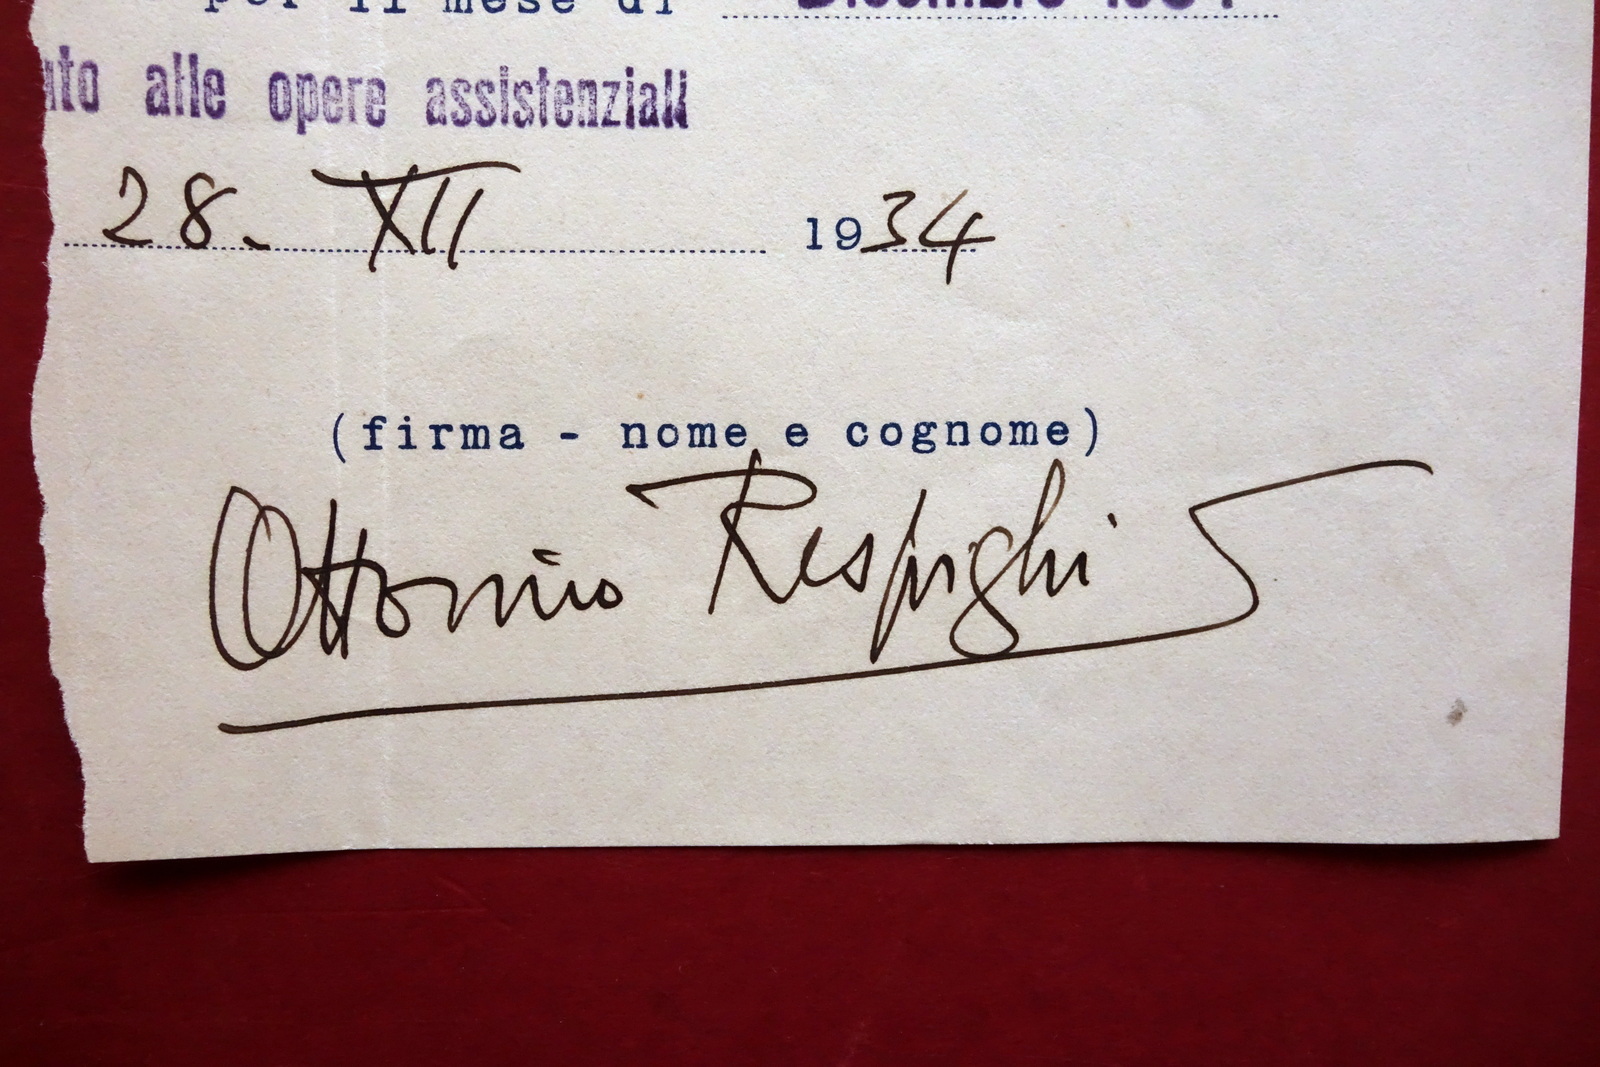 per il mese di Dicembre 1934
ato alle opere assistenziali
28. XII 1934
(firma - nome e cognome)
Ottorino Respighi